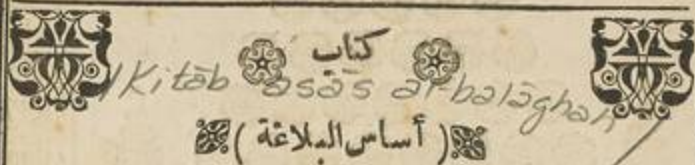 كتاب
Kitāb asās al-balāghah
( أساس البلاغة )